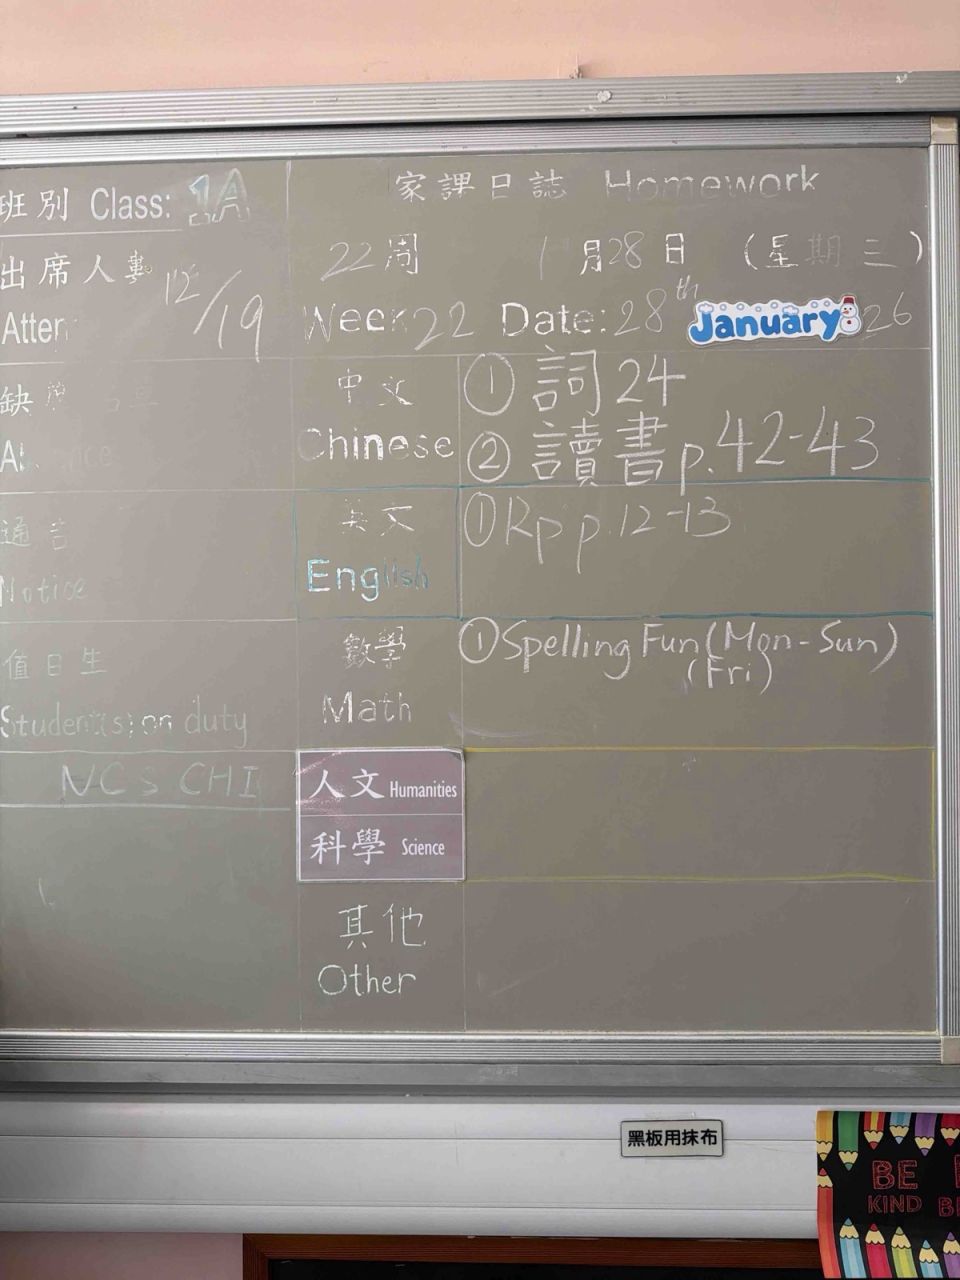 班別 Class: 1A
家課日誌 Homework
出席人數
12/19
22周 1月28日 (星期三)
Week 22 Date: 28th January 26
中文
Chinese
① 詞24
② 讀書 p.42-43
通告
Notice
英文
English
① Rp p.12-13
值日生
Student(s) on duty
數學
Math
① Spelling Fun (Mon-Sun)
(Fri)
NCS CHI
人文 Humanities
科學 Science
其他
Other
黑板用抹布
BE
KIND